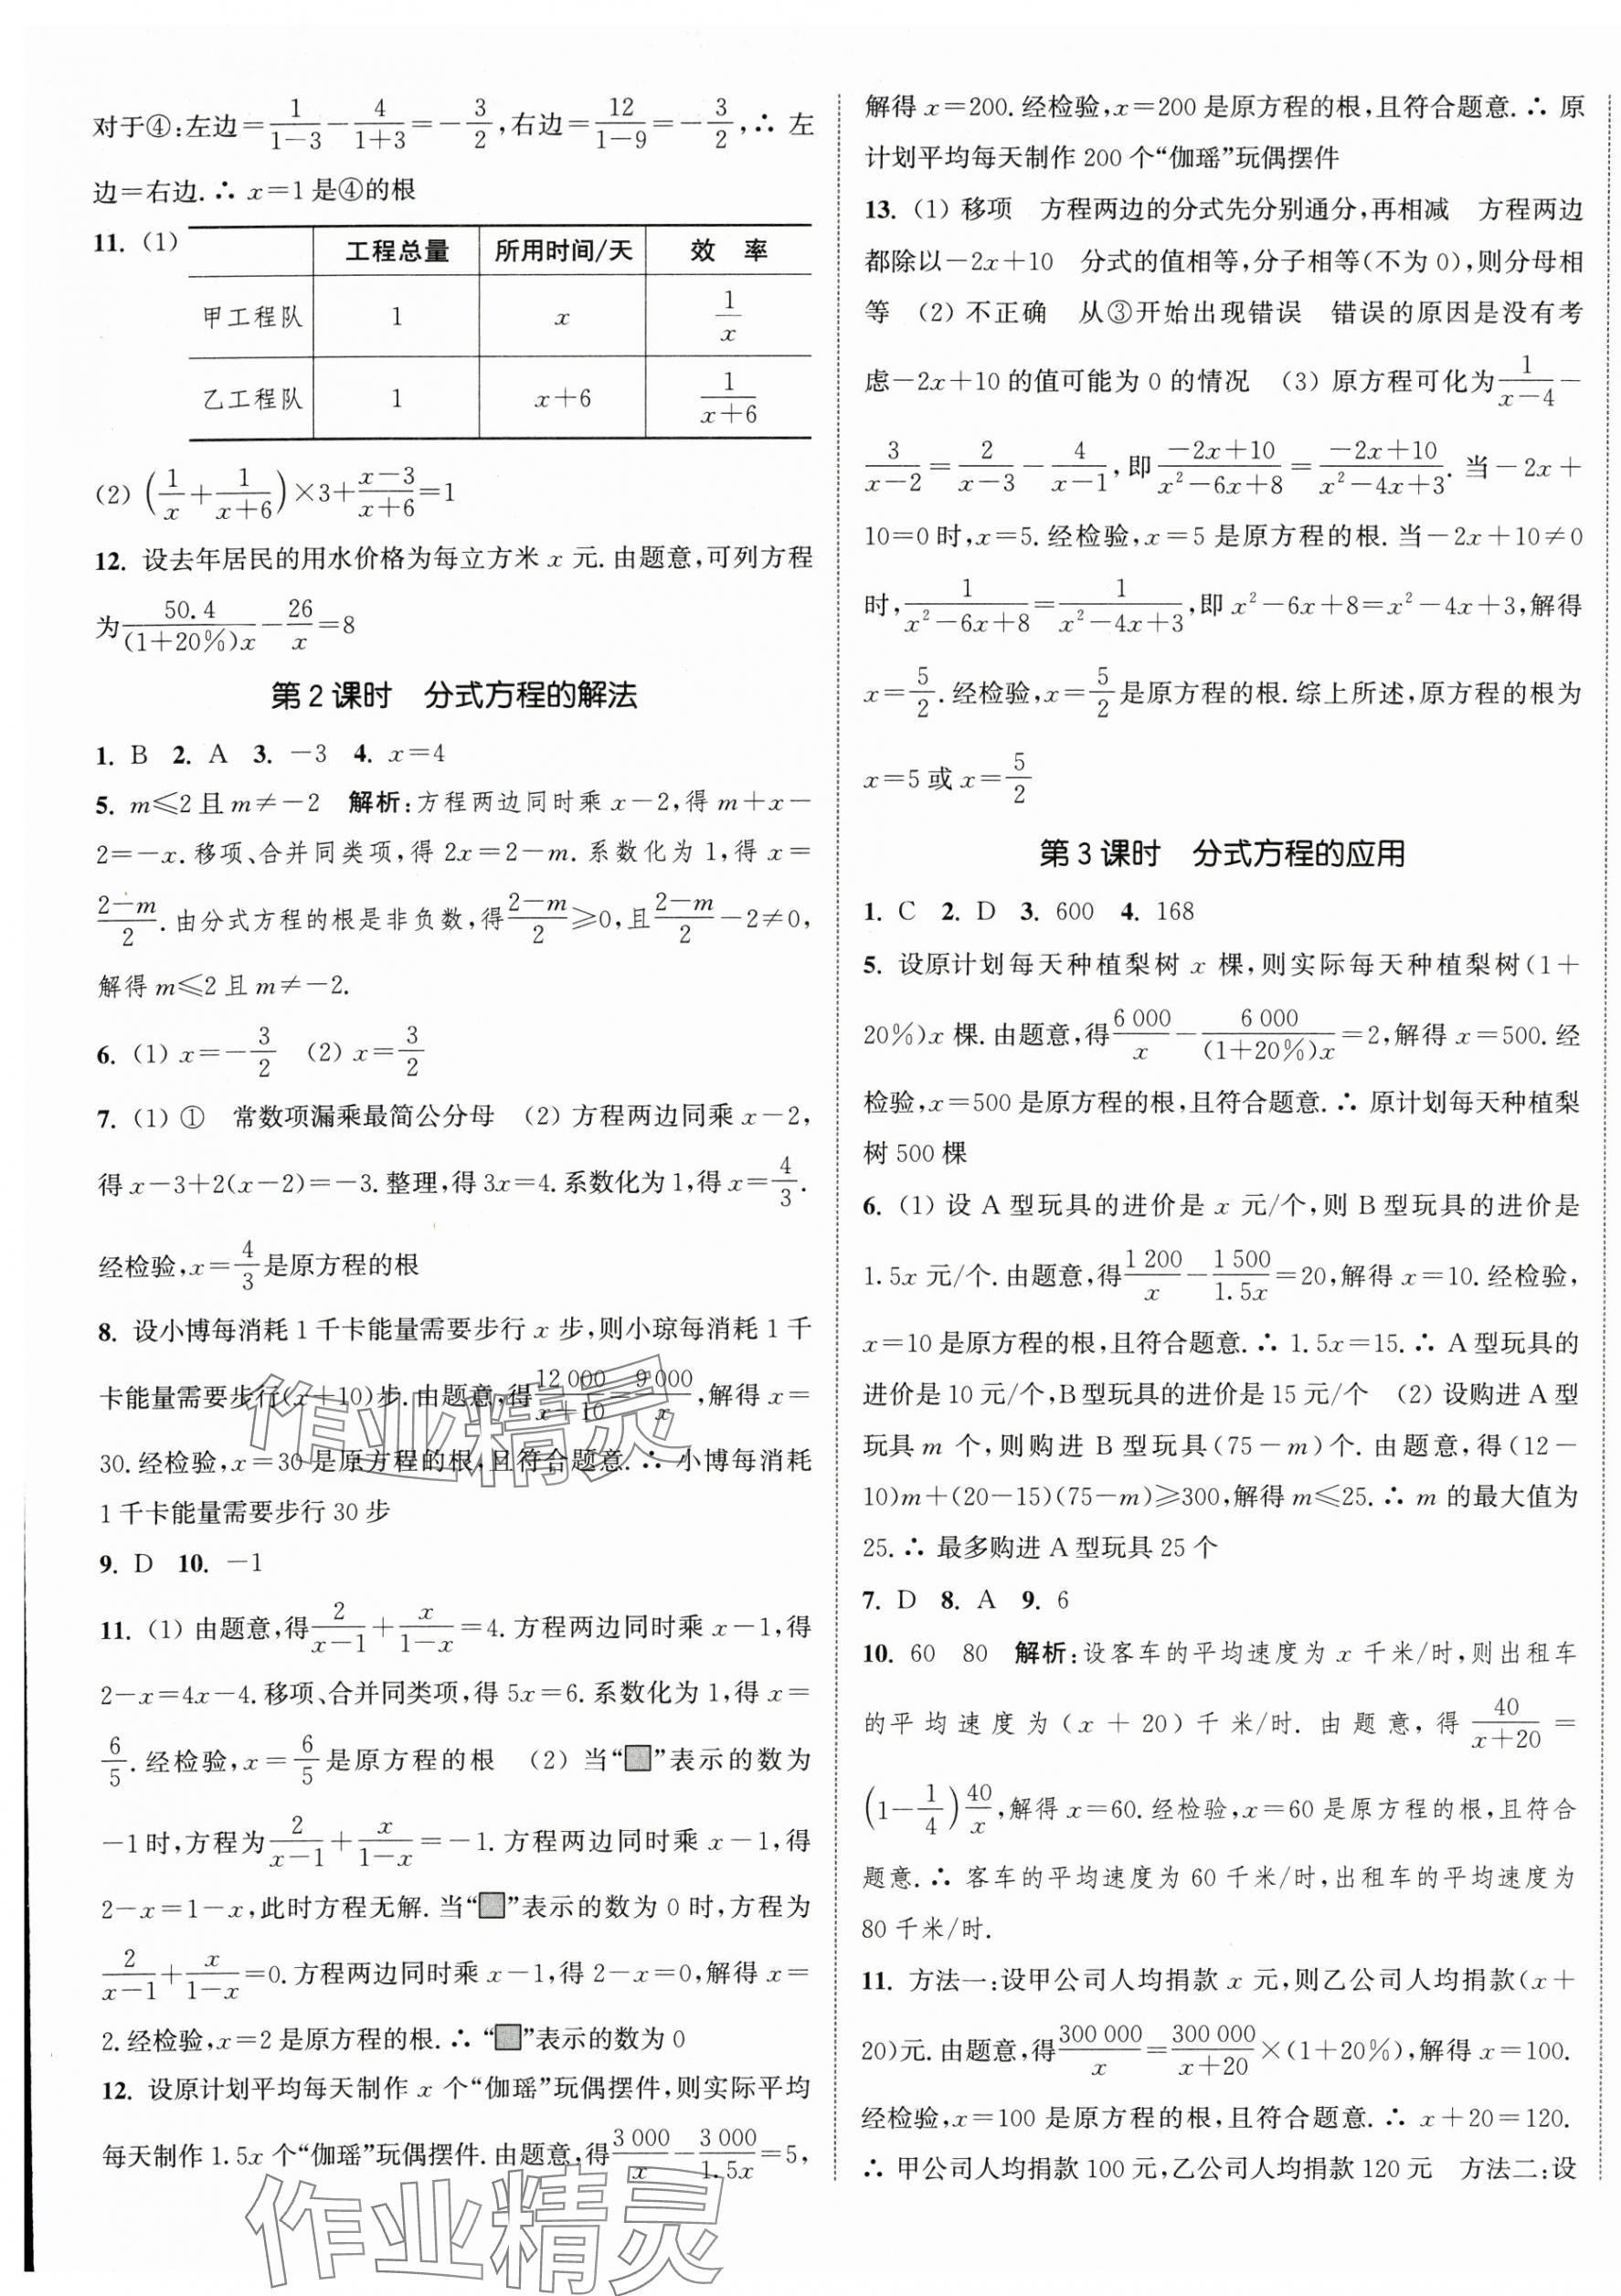 对于④:左边=$\frac{1}{1-3}-\frac{4}{1+3}=-\frac{3}{2}$,右边=$\frac{12}{1-9}=-\frac{3}{2}$,∴ 左
边=右边.∴ x=1是④的根
11. (1)
工程总量 所用时间/天 效 率
甲工程队 1 x $\frac{1}{x}$
乙工程队 1 x+6 $\frac{1}{x+6}$
(2) $\left(\frac{1}{x}+\frac{1}{x+6}\right)×3+\frac{x-3}{x+6}=1$
12. 设去年居民的用水价格为每立方米 x 元.由题意,可列方程
为$\frac{50.4}{(1+20\%)x}-\frac{26}{x}=8$
第2课时 分式方程的解法
1. B 2. A 3. -3 4. x=4
5. m≤2且m≠-2 解析:方程两边同时乘 x-2,得 m+x-
2=-x.移项、合并同类项,得 2x=2-m.系数化为1,得 x=
$\frac{2-m}{2}$.由分式方程的根是非负数,得$\frac{2-m}{2}$≥0,且$\frac{2-m}{2}$-2≠0,
解得 m≤2 且 m≠-2.
6. (1) x=$-\frac{3}{2}$ (2) x=$\frac{3}{2}$
7. (1) ① 常数项漏乘最简公分母 (2) 方程两边同乘 x-2,
得 x-3+2(x-2)=-3.整理,得 3x=4.系数化为1,得 x=$\frac{4}{3}$.
经检验,x=$\frac{4}{3}$是原方程的根
8. 设小博每消耗1千卡能量需要步行 x 步,则小琼每消耗1千
卡能量需要步行(x+10)步.由题意,得$\frac{12 000}{x+10}=\frac{9 000}{x}$,解得 x=
30.经检验,x=30是原方程的根,且符合题意.∴ 小博每消耗
1千卡能量需要步行30步
9. D 10. -1
11. (1) 由题意,得$\frac{2}{x-1}+\frac{x}{1-x}=4$.方程两边同时乘 x-1,得
2-x=4x-4.移项、合并同类项,得 5x=6.系数化为1,得 x=
$\frac{6}{5}$.经检验,x=$\frac{6}{5}$是原方程的根 (2) 当“■”表示的数为
-1时,方程为$\frac{2}{x-1}+\frac{x}{1-x}=-1$.方程两边同时乘 x-1,得
2-x=1-x,此时方程无解.当“■”表示的数为0时,方程为
$\frac{2}{x-1}+\frac{x}{1-x}=0$.方程两边同时乘 x-1,得 2-x=0,解得 x=
2.经检验,x=2是原方程的根.∴ “■”表示的数为0
12. 设原计划平均每天制作 x 个“伽瑶”玩偶摆件,则实际平均
每天制作1.5x 个“伽瑶”玩偶摆件.由题意,得$\frac{3 000}{x}-\frac{3 000}{1.5x}=5$,
解得 x=200.经检验,x=200是原方程的根,且符合题意.∴ 原
计划平均每天制作200个“伽瑶”玩偶摆件
13. (1) 移项 方程两边的分式先分别通分,再相减 方程两边
都除以-2x+10 分式的值相等,分子相等(不为0),则分母相
等 (2) 不正确 从③开始出现错误 错误的原因是没有考
虑-2x+10的值可能为0的情况 (3) 原方程可化为$\frac{1}{x-4}$-
$\frac{3}{x-2}=\frac{2}{x-3}-\frac{4}{x-1}$,即$\frac{-2x+10}{x^2-6x+8}=\frac{-2x+10}{x^2-4x+3}$.当-2x+
10=0时,x=5.经检验,x=5是原方程的根.当-2x+10≠0
时,$\frac{1}{x^2-6x+8}=\frac{1}{x^2-4x+3}$,即 $x^2-6x+8=x^2-4x+3$,解得
x=$\frac{5}{2}$.经检验,x=$\frac{5}{2}$是原方程的根.综上所述,原方程的根为
x=5或 x=$\frac{5}{2}$
第3课时 分式方程的应用
1. C 2. D 3. 600 4. 168
5. 设原计划每天种植梨树 x 棵,则实际每天种植梨树(1+
20%)x 棵.由题意,得$\frac{6 000}{x}-\frac{6 000}{(1+20\%)x}=2$,解得 x=500.经
检验,x=500是原方程的根,且符合题意.∴ 原计划每天种植梨
树500棵
6. (1) 设 A 型玩具的进价是 x 元/个,则 B 型玩具的进价是
1.5x 元/个.由题意,得$\frac{1 200}{x}-\frac{1 500}{1.5x}=20$,解得 x=10.经检验,
x=10是原方程的根,且符合题意.∴ 1.5x=15.∴ A 型玩具的
进价是10元/个,B型玩具的进价是15元/个 (2) 设购进 A 型
玩具 m 个,则购进 B 型玩具(75-m)个.由题意,得(12-
10)m+(20-15)(75-m)≥300,解得 m≤25.∴ m 的最大值为
25.∴ 最多购进 A 型玩具25个
7. D 8. A 9. 6
10. 60 80 解析:设客车的平均速度为 x 千米/时,则出租车
的平均速度为(x+20)千米/时.由题意,得$\frac{40}{x+20}$=
$\left(1-\frac{1}{4}\right)\frac{40}{x}$,解得 x=60.经检验,x=60是原方程的根,且符合
题意.∴ 客车的平均速度为60千米/时,出租车的平均速度为
80千米/时.
11. 方法一:设甲公司人均捐款 x 元,则乙公司人均捐款(x+
20)元.由题意,得$\frac{300 000}{x}=\frac{300 000}{x+20}$×(1+20%),解得 x=100.
经检验,x=100是原方程的根,且符合题意.∴ x+20=120.
∴ 甲公司人均捐款100元,乙公司人均捐款120元 方法二:设
作业精灵
作业精灵